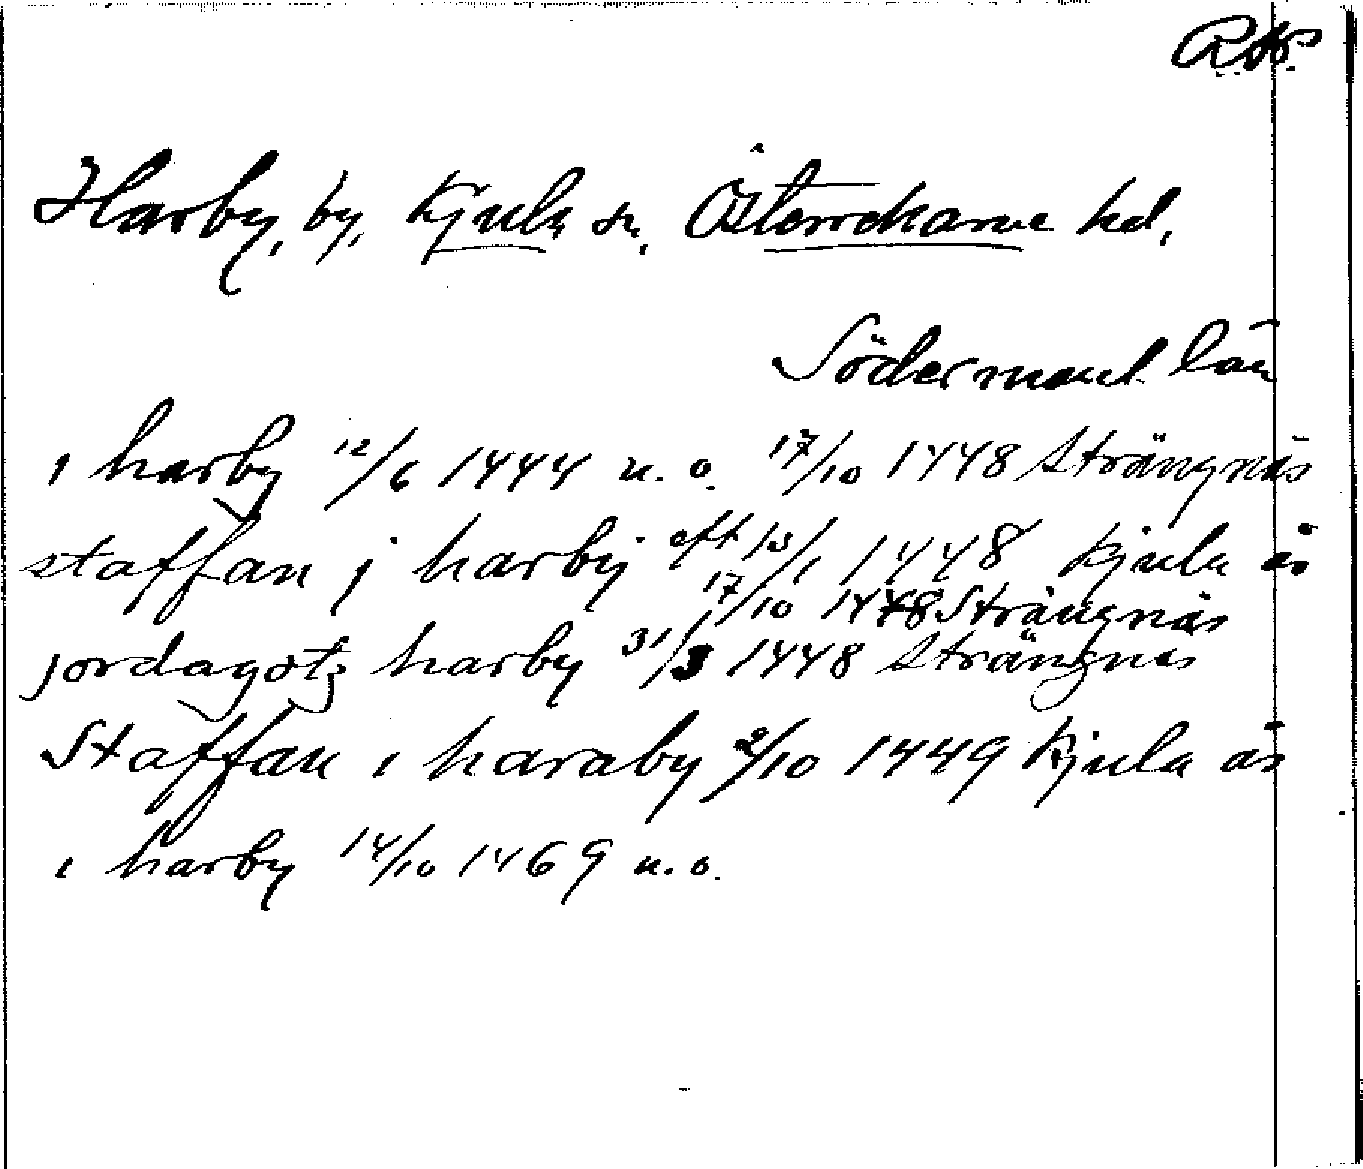 Harby, by, Kjula sn, Österrekarne hd,
Södermanl. län
i harby 12/6 1444 u. o. 17/10 1448 Strängnäs
staffan j harbÿ eft 13/1 1448 Kjula ås
17/10 1448 Strängnäs
jordagotz harby 31/3 1448 Strängnäs
Staffan i haraby 2/10 1449 Kjula ås
i harby 14/10 1469 u. o.